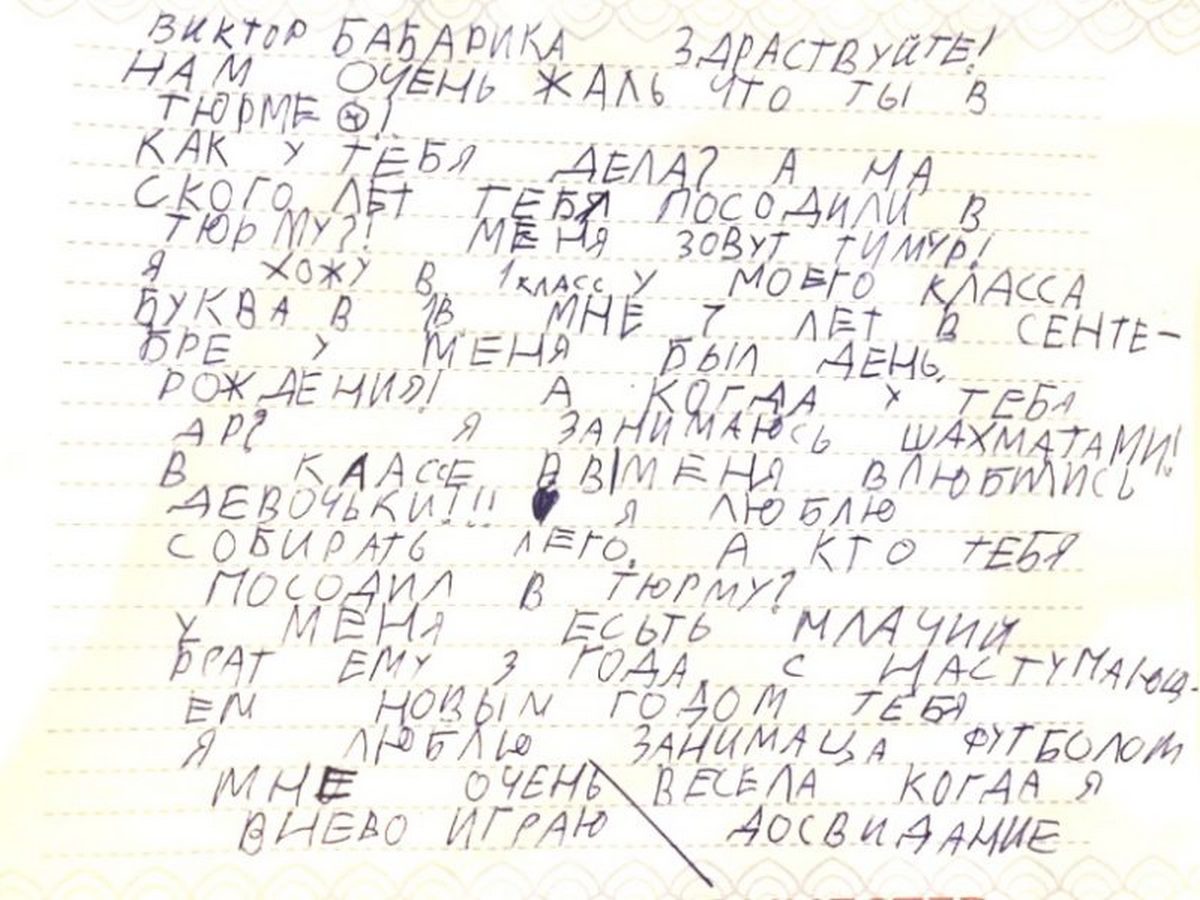 ВИКТОР БАБАРИКА ЗДРАСТВУЙТЕ!
НАМ ОЧЕНЬ ЖАЛЬ ЧТО ТЫ В
ТЮРМЕ !
КАК У ТЕБЯ ДЕЛА? А НА
СКОГО ЛЕТ ТЕБЯ ПОСОДИЛИ В
ТЮРМУ?! МЕНЯ ЗОВУТ ТИМУР!
Я ХОЖУ В 1 КЛАСС У МОЕГО КЛАССА
БУКВА В 1В. МНЕ 7 ЛЕТ В СЕНТЕ-
БРЕ У МЕНЯ БЫЛ ДЕНЬ
РОЖДЕНИЯ! А КОГДА У ТЕБЯ
ДР? Я ЗАНИМАЮСЬ ШАХМАТАМИ!
В КЛАССЕ В МЕНЯ ВЛЮБИЛИСЬ
ДЕВОЧЬКИ!!! Я ЛЮБЛЮ
СОБИРАТЬ ЛЕГО. А КТО ТЕБЯ
ПОСОДИЛ В ТЮРМУ?
У МЕНЯ ЕСЬТЬ МЛАЧИЙ
БРАТ ЕМУ 3 ГОДА. С НАСТУПАЮЩ-
ЕМ НОВЫМ ГОДОМ ТЕБЯ
Я ЛЮБЛЮ ЗАНИМАЦА ФУТБОЛОМ
МНЕ ОЧЕНЬ ВЕСЕЛА КОГДА Я
ВНЕВО ИГРАЮ ДОСВИДАНИЕ